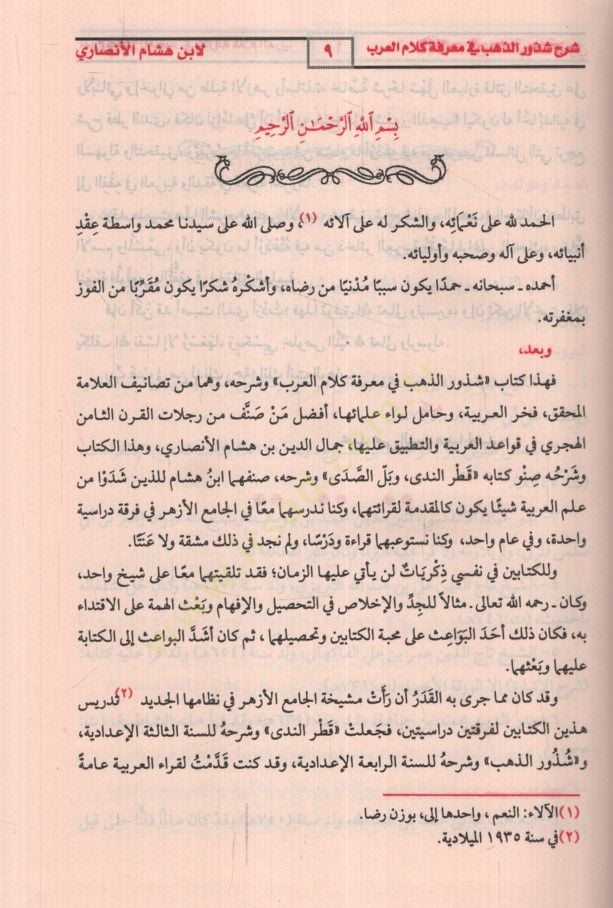 شرح شذور الذهب في معرفة كلام العرب ٩ لابن هشام الأنصاري
بِسْمِ اللَّهِ الرَّحْمَٰنِ الرَّحِيمِ
الحمد لله على نَعْمائِه، والشكر له على آلائه (١)، وصلى الله على سيدنا محمد واسطة عِقْدِ
أنبيائه، وعلى آله وصحبه وأوليائه.
أحمده ـ سبحانه ـ حمدًا يكون سببًا مُدْنيًا من رضاه، وأشكرهُ شكرًا يكون مُقَرِّبًا من الفوز
بمغفرته.
وبعد،
فهذا كتاب «شذور الذهب في معرفة كلام العرب» وشرحه، وهما من تصانيف العلامة
المحقق، فخر العربية، وحامل لواء علمائها، أفضل مَنْ صَنَّف من رجلات القرن الثامن
الهجري في قواعد العربية والتطبيق عليها، جمال الدين بن هشام الأنصاري، وهذا الكتاب
وشَرْحُه صِنْو كتابه «قَطْر الندى، وبَلّ الصَّدَى» وشرحه، صنفهما ابنُ هشام للذين شَدَوْا من
علم العربية شيئًا يكون كالمقدمة لقرائتهما، وكنا ندرسهما معًا في الجامع الأزهر في فرقة دراسية
واحدة، وفي عام واحد، وكنا نستوعبهما قراءة ودَرْسًا، ولم نجد في ذلك مشقة ولا عَنَتًا.
وللكتابين في نفسي ذِكْرِيَاتٌ لن يأتي عليها الزمان؛ فقد تلقيتهما معًا على شيخ واحد،
وكان ـ رحمه الله تعالى ـ مثالاً للجِدِّ والإخلاص في التحصيل والإفهام وبَعْث الهمة على الاقتداء
به، فكان ذلك أحَدَ البَوَاعِث على محبة الكتابين وتحصيلهما، ثم كان أشَدَّ البواعث إلى الكتابة
عليهما وبَعْثهما.
وقد كان مما جرى به القَدَرُ أن رَأَتْ مشيخة الجامع الأزهر في نظامها الجديد (٢) تدريس
هذين الكتابين لفرقتين دراسيتين، فجَعلتْ «قَطْر الندى» وشرحهُ للسنة الثالثة الإعدادية،
و«شُذُور الذهب» وشرحهُ للسنة الرابعة الإعدادية، وقد كنت قَدَّمْتُ لقراء العربية عامةً
(١) الآلاء: النعم، واحدها إلى، بوزن رضا.
(٢) في سنة ١٩٣٥ الميلادية.